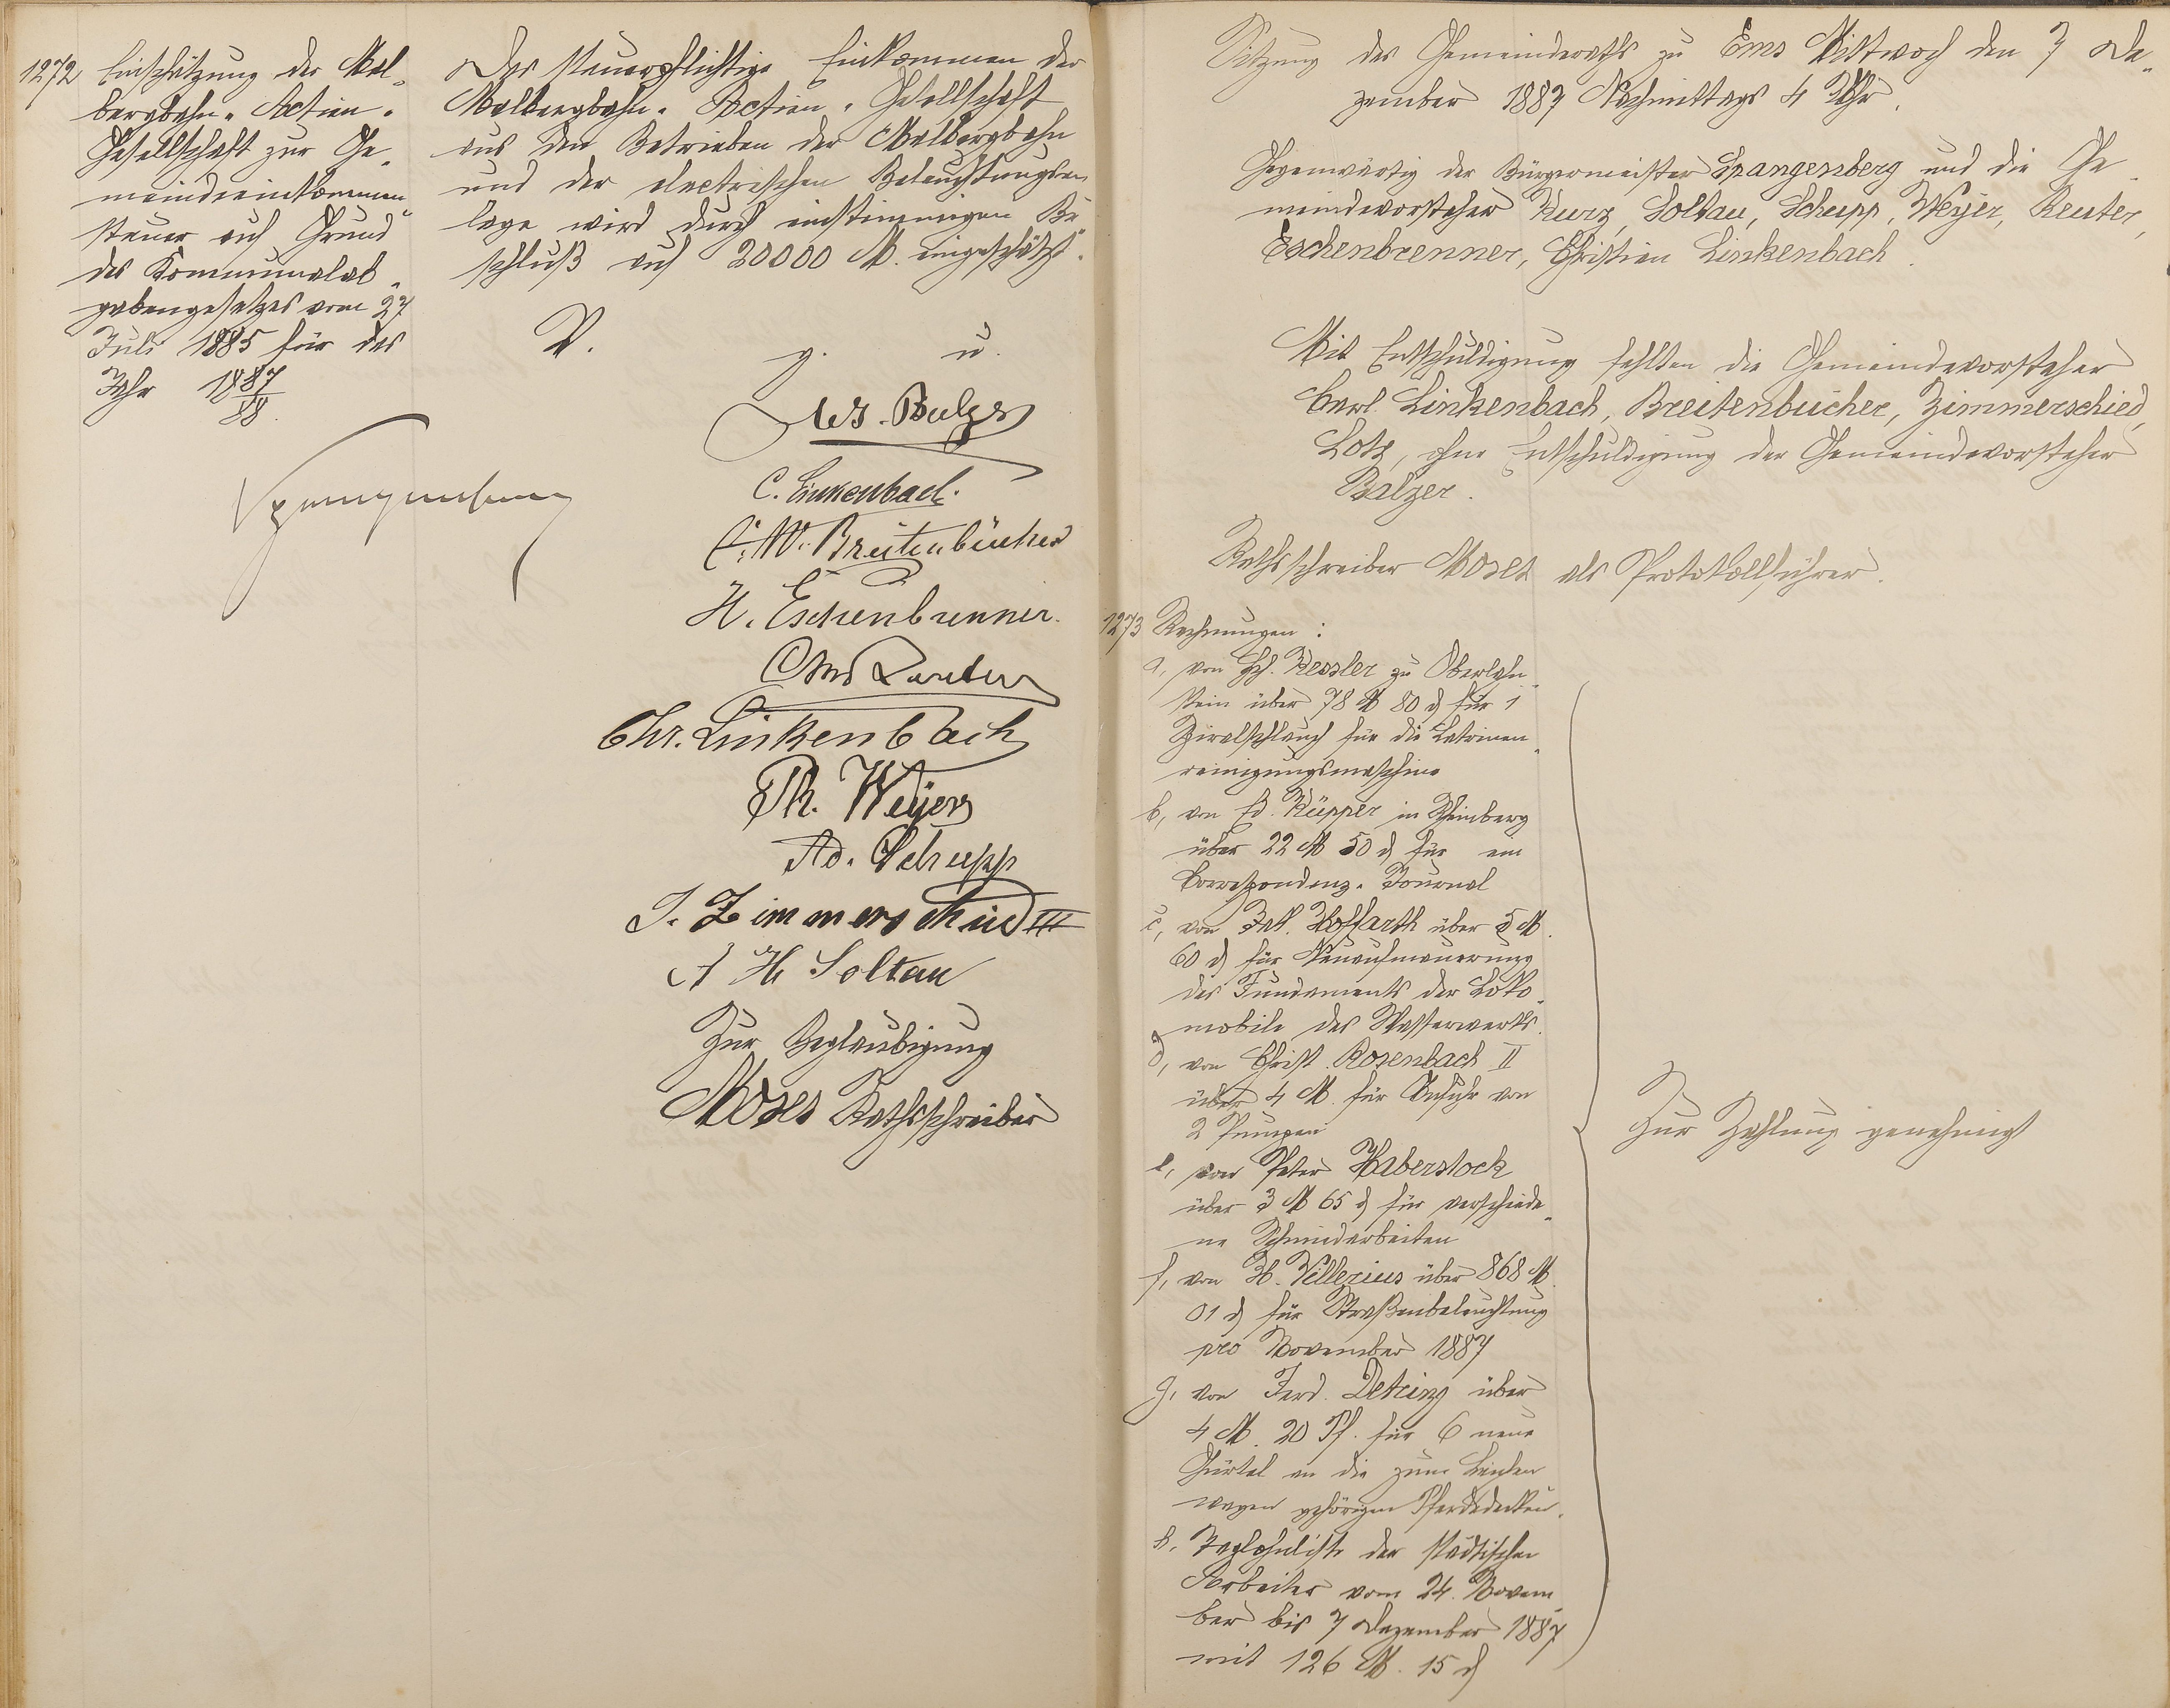 1272 Einschätzung der Mal-
bergbahn-Actien-
Gesellschaft zur Ge-
meindeeinkommen-
steuer auf Grund
des Kommunalab-
gabengesetzes vom 27
Juli 1885 für das
Jahr 1887/88.
Spangenberg
Das steuerpflichtige Einkommen der
Malbergbahn-Actien-Gesellschaft
aus den Betrieben der Malbergbahn
und der electrischen Beleuchtungsan-
lage wird durch einstimmigen Be-
schluß auf 20000 M. eingeschätzt.
V. g. u.
Balzer
C. Linkenbach.
C. W. Breitenbücher
H. Eschenbrenner.
Reuter
Chr. Linkenbach
Ph. Weyer
Ad. Schupp
J. Zimmerschied III
A H Soltau
Zur Beglaubigung
Moses Rathsschreiber
Sitzung des Gemeinderaths zu Ems Mittwoch den 7 De-
zember 1887 Nachmittags 4 Uhr.
Gegenwärtig der Bürgermeister Spangenberg und die Ge-
meindevorsteher Kurz, Soltau, Schupp, Weyer, Reuter,
Eschenbrenner, Christian Linkenbach.
Mit Entschuldigung fehlten die Gemeindevorsteher
Carl Linkenbach, Breitenbücher, Zimmerschied,
Lotz, ohne Entschuldigung der Gemeindevorsteher
Balzer.
Rathsschreiber Moses als Protokollführer.
1273 Rechnungen:
a, von Gg. Kessler zu Oberlahn-
stein über 78 M 80 d für 1
Spiralschlauch für die Latrinen-
reinigungsmaschine
b, von Ed. Küpper in Rheinberg
über 22 M 50 d für ein
Correspondenz-Journal
c, von Jak. Hoffarth über 5 M.
60 d für Neuaufmauerung
des Fundaments der Loko-
mobile des Wasserwerks.
d, von Christ. Rosenbach II
über 4 M. für Anfuhr von
2 Pumpen
e, von Peter Haberstock
über 3 M 65 d für verschiede-
ne Schmiedarbeiten
f, von H. Vellerius über 868 M.
01 d für Straßenbeleuchtung
pro November 1887
g, von Ferd. Detring über
4 M. 20 Pf. für 6 neue
Gürtel an die zum Leichen
wagen gehörigen Pferdedecken.
h. Taglohnliste der städtischen
Arbeiter vom 24. Novem-
ber bis 7 Dezember 1887
mit 126 M. 15 d
Zur Zahlung genehmigt